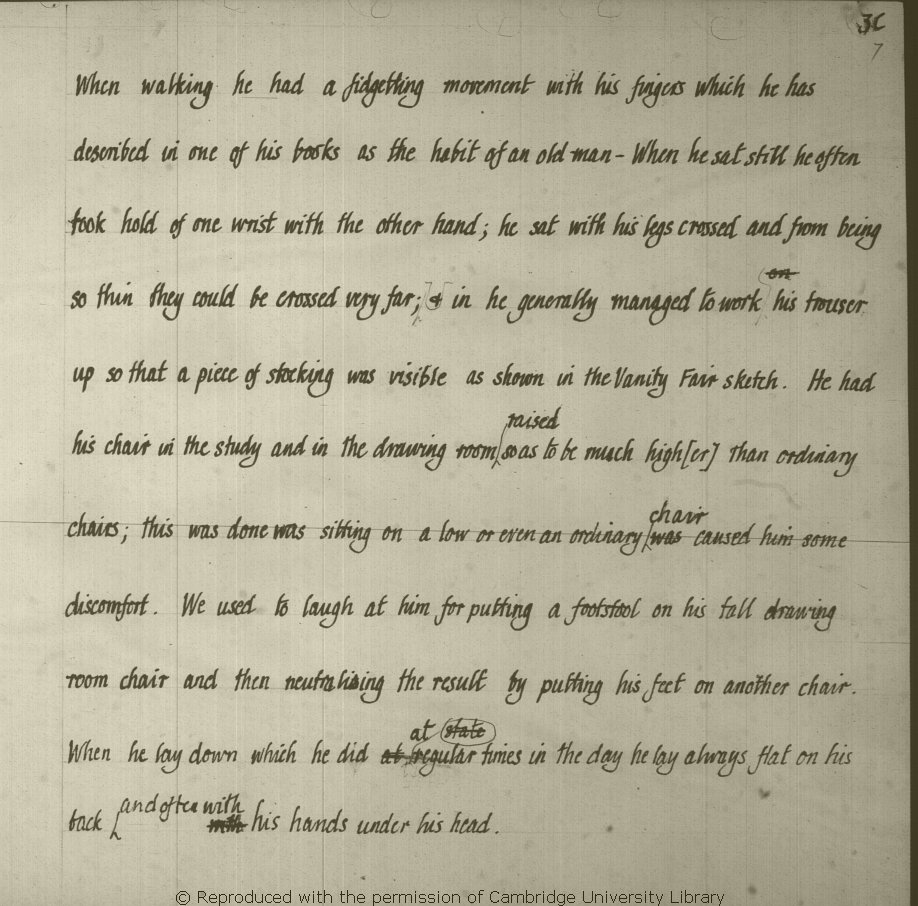 3C
7
When walking he had a fidgetting movement with his fingers which he has
described in one of his books as the habit of an old man - When he sat still he often
took hold of one wrist with the other hand; he sat with his legs crossed and from being
on
so thin they could be crossed very far; & in he generally managed to work his trouser
up so that a piece of stocking was visible as shown in the Vanity Fair sketch. He had
raised
his chair in the study and in the drawing room so as to be much high[er] than ordinary
chair
chairs; this was done was sitting on a low or even an ordinary was caused him some
discomfort. We used to laugh at him for putting a footstool on his tall drawing
room chair and then neutralising the result by putting his feet on another chair.
at state
When he lay down which he did at regular times in the day he lay always flat on his
and often with
back with his hands under his head.
© Reproduced with the permission of Cambridge University Library